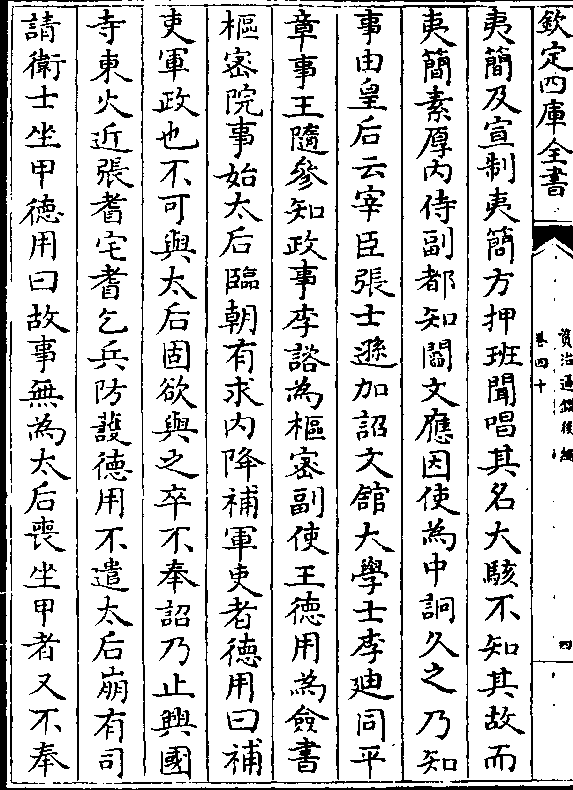 欽定四庫全書
資治通鑑後編
卷四十
四
夷簡及宣制夷簡方押班聞唱其名大駭不知其故而
夷簡素厚內侍副都知閻文應因使為中詗久之乃知
事由皇后云宰臣張士遜加詔文館大學士李廸同平
章事王隨參知政事李諮為樞密副使王德用為僉書
樞密院事始太后臨朝有求內降補軍吏者德用曰補
吏軍政也不可與太后固欲與之卒不奉詔乃止興國
寺東火近張耆宅耆乞兵防護德用不遣太后崩有司
請衛士坐甲德用曰故事無為太后喪坐甲者又不奉